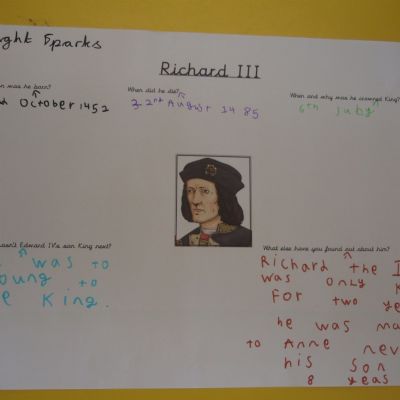 Sparks
Richard III
was he born?
When did he die?
When and why was he crowned King?
October 1452
22nd August 1485
6th July
Edward IV's son King next?
What else have you found out about him?
was to
to
King.
Richard the
was only
For two
he was
to Anne
his son
8 yeas